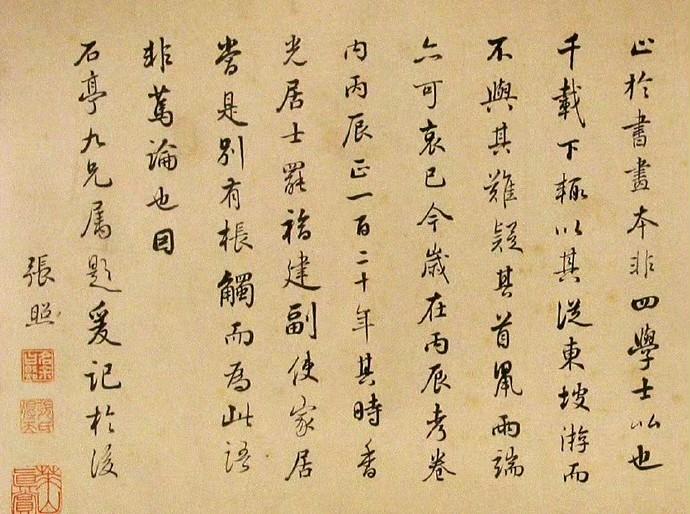 止於書畫本非四學士以也
千載下輙以其從東坡游而
不與其難疑其首鼠兩端
亦可哀已今歲在丙辰考卷
內丙辰正一百二十年其時香
光居士罷福建副使家居
嘗是別有棖觸而為此語
非篤論也因
石亭九兄属題爰記於後
張照